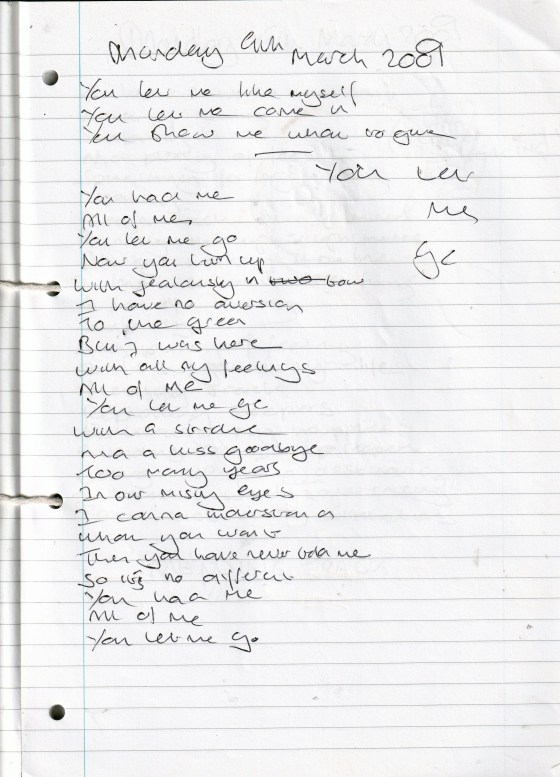 Monday 9th March 2009
You let me like myself
You let me come in
You show me what to give
You let
me
go
You had me
All of me,
You let me go
Now you turn up
with jealousy in two tow
I have no aversion
To the green
But I was here
with all my feelings
All of me
You let me go
with a
and a kiss goodbye
Too many years
In our misty eyes
I canna understand
what you want
Then you have never told me
So it's no different
You had me
All of me
You let me go.